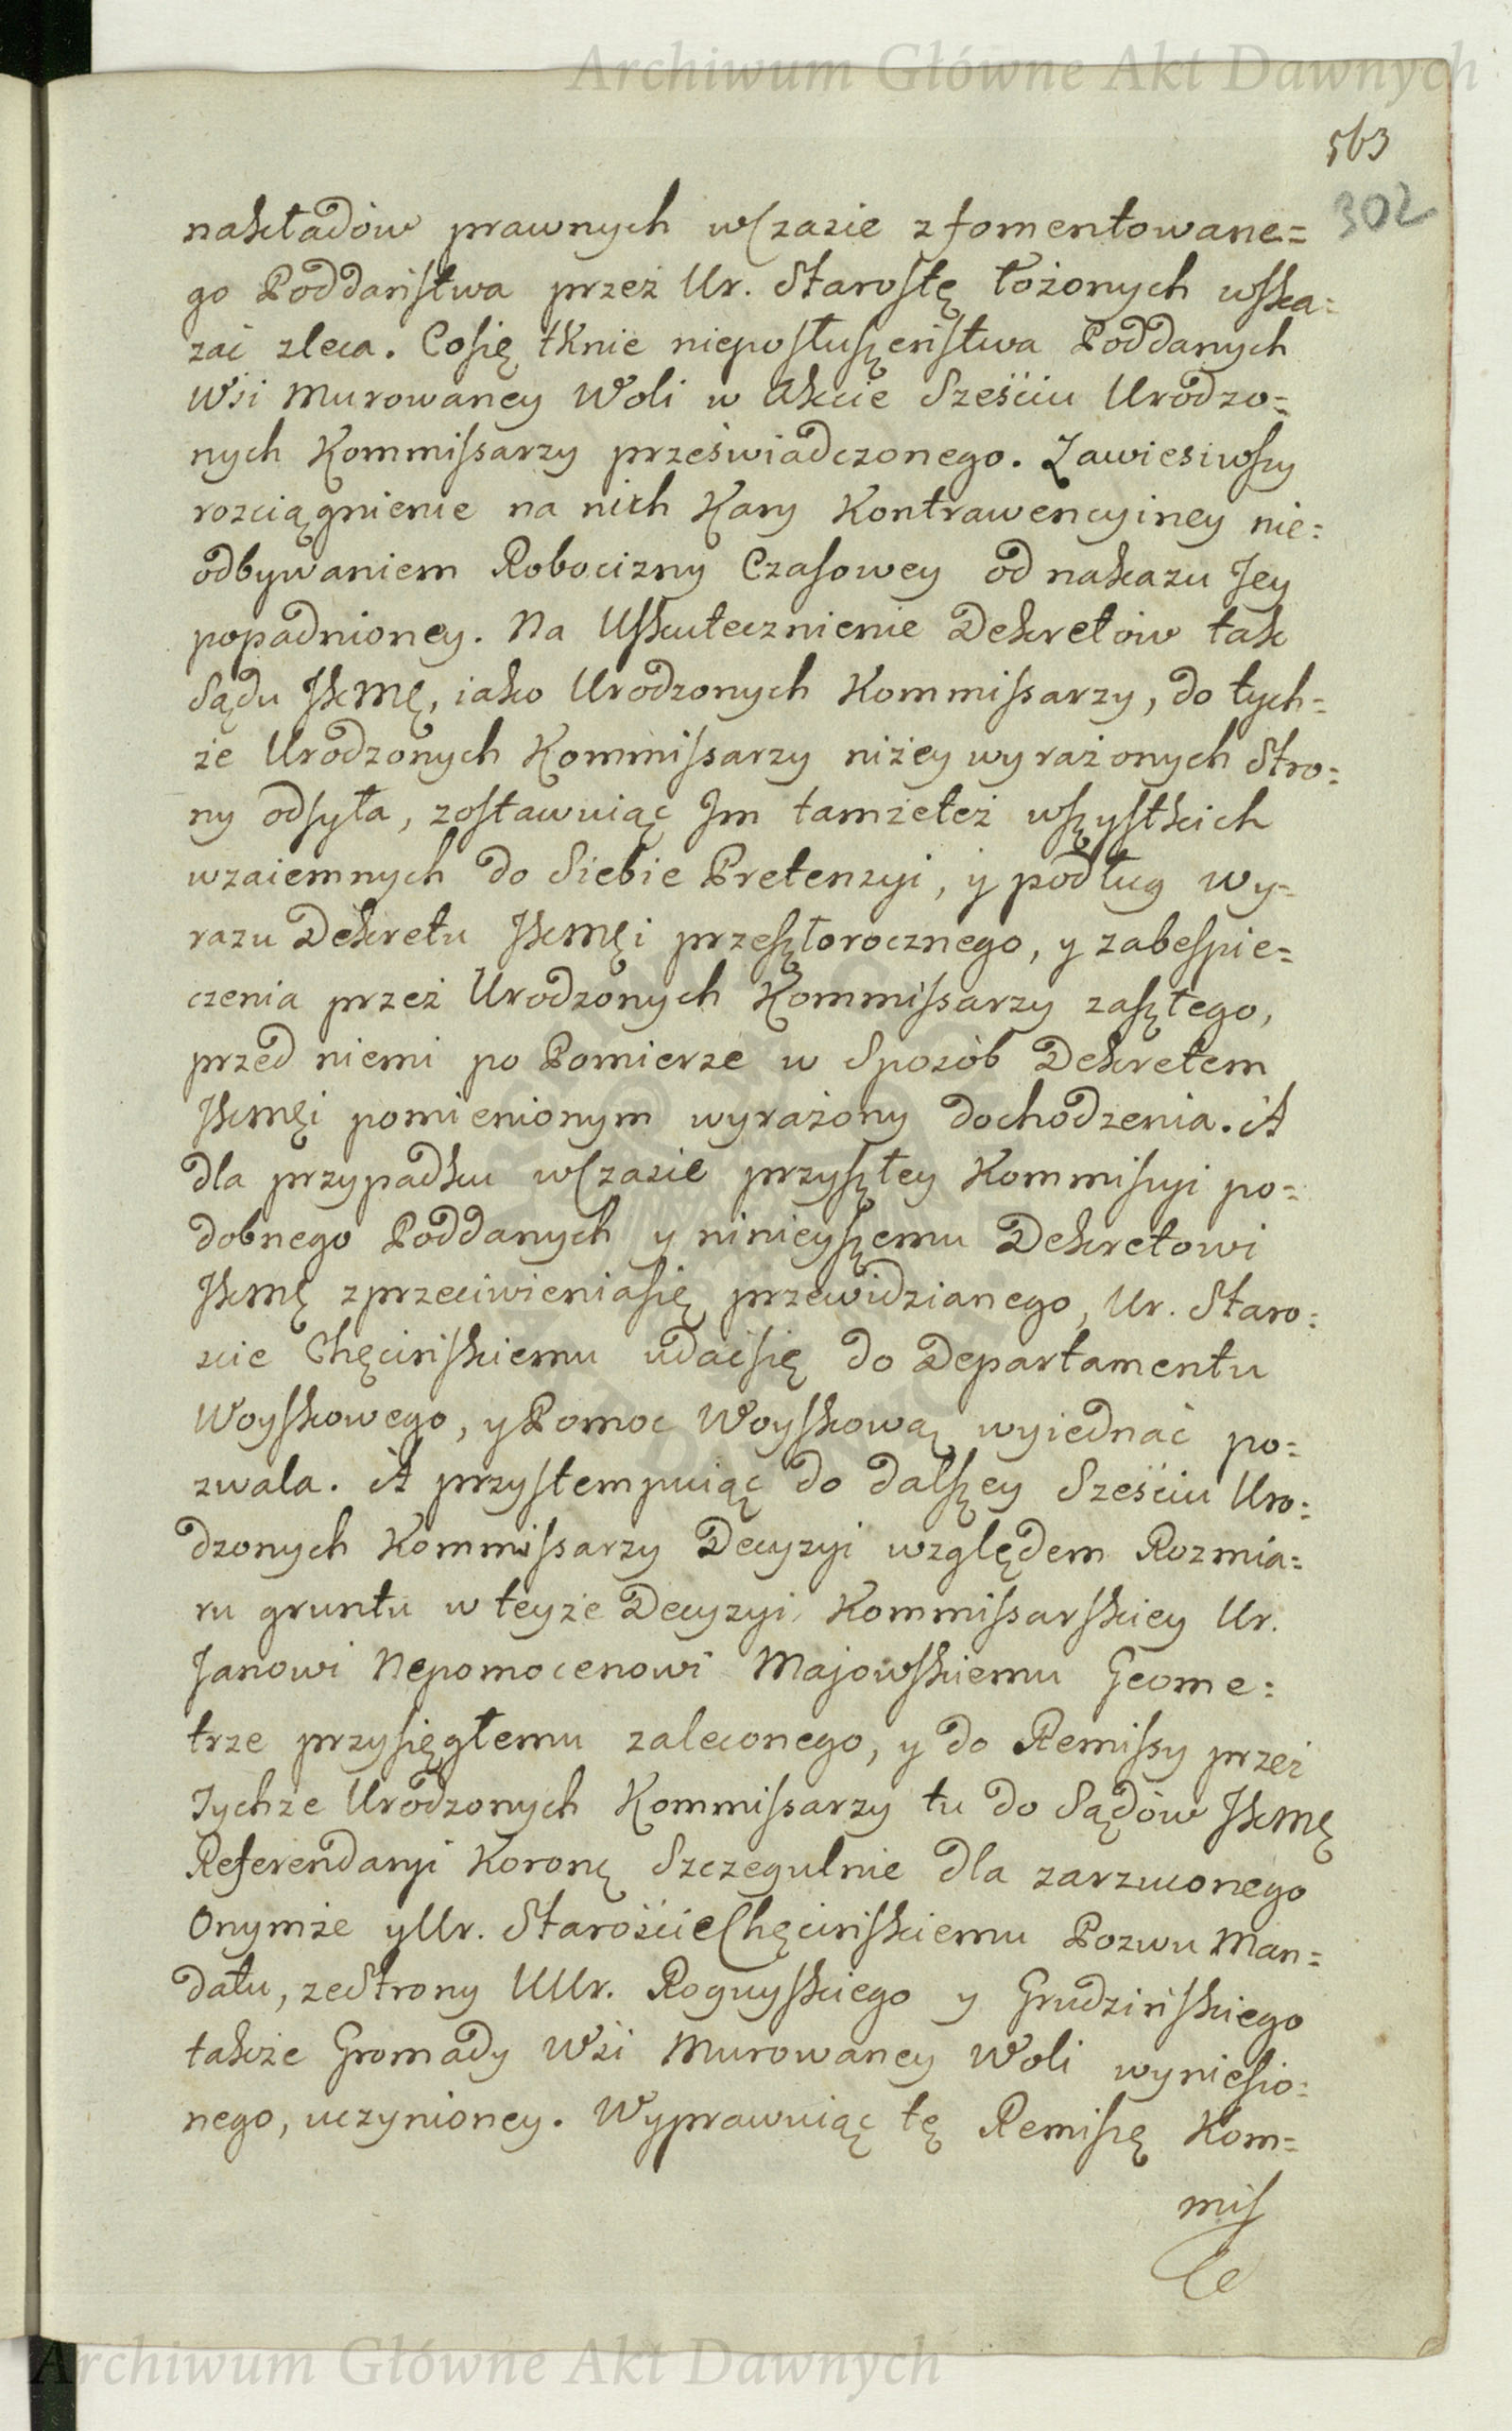 Archiwum Główne Akt Dawnych
563
302
nakładów prawnych wCzasie zfomentowane=
go Poddaństwa przez Ur. Starostę łożonych wska=
zać zleca. Cosię tknie nieposłuszeństwa Poddanych
Wsi Murowaney Woli w Akcie Sześciu Urodzo=
nych Kommissarzy przeświadczonego. Zawiesiwszy
rozciągnienie na nich Kary Kontrawencyiney nie=
odbywaniem Robocizny Czasowey od nakazu Jey
popadnioney. Na Uskutecznienie Dekretów tak
Sądu JKMę, iako Urodzonych Kommissarzy, do tych=
że Urodzonych Kommissarzy niżey wyrażonych Stro=
ny odsyła, zostawuiąc Im tamżeteż wszystkich
wzaiemnych do Siebie Pretenzyi, y podług wy=
razu Dekretu JKMęi przeszłorocznego, y zabespie=
czenia przez Urodzonych Kommissarzy zaszłego,
przed niemi po Pomierze w Sposób Dekretem
JKmęi pomienionym wyrażony dochodzenia. A
dla przypadku wCzasie przyszłey Kommissyi po=
dobnego Poddanych y ninieyszemu Dekretowi
JKmę zprzeciwieniasię przewidzianego, Ur. Staro=
scie Chęcińskiemu udaćsię do Departamentu
Woyskowego, y Pomoc Woyskową wyiednać po=
zwala. A przystempuiąc do dalszey Sześciu Uro=
dzonych Kommissarzy Decyzyi względem Rozmia=
ru gruntu w teyże Decyzyi Kommissarskiey Ur.
Janowi Nepomocenowi Majowskiemu Geome=
trze przysięgłemu zaleconego, y do Remissy przez
Tychże Urodzonych Kommissarzy tu do Sądów JKMę
Referendaryi Koronę Szczegulnie dla zarzuconego
Onymże y Ur. Staroście Chęcińskiemu Pozwu Man=
datu, zeStrony UUr. Roguyskiego y Grudzińskiego
także Gromady Wsi Murowaney Woli wyniesio=
nego, uczynioney. Wyprawuiąc tę Remissę Kom=
mis
Archiwum Główne Akt Dawnych